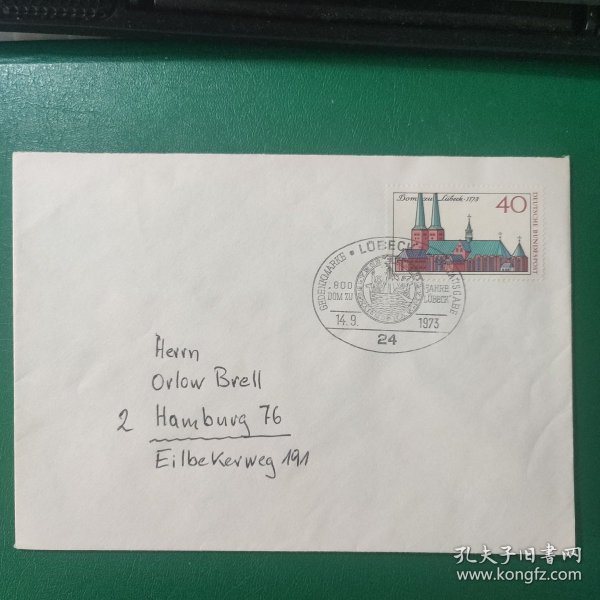 Dom zu Lübeck · 1173
40
DEUTSCHE BUNDESPOST
GEDENKMARKE • LÜBECK
AUSGABE
800 JAHRE
DOM ZU LÜBECK
14.9. 1973
24
Herrn
Orlow Brell
2 Hamburg 76
Eilbekerweg 191
孔夫子旧书网
www.kongfz.com